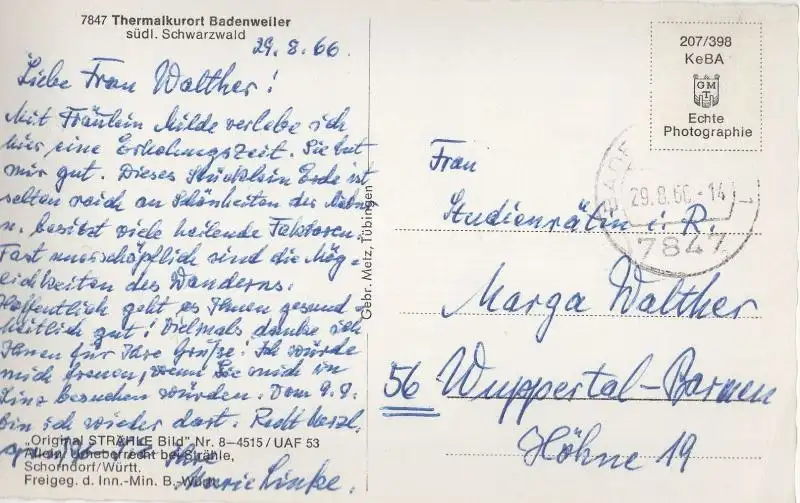 7847 Thermalkurort Badenweiler
südl. Schwarzwald
29. 8. 66.
Liebe Frau Walther!
Mit Fräulein Milde verlebe ich
hier eine Erholungszeit. Sie tut
mir gut. Dieses Stücklein Erde ist
selten reich an Schönheiten der Natur
u. besitzt viele heilende Faktoren.
Fast unerschöpflich sind die Mög-
lichkeiten des Wanderns.
Hoffentlich geht es Ihnen gesund-
heitlich gut! Vielmals danke ich
Ihnen für Ihre Grüße! Ich würde
mich freuen, wenn Sie mich in
Linz besuchen würden. Vom 9. 9.
bin ich wieder dort. Recht herzl.
Ihre
Annarie Linke.
„Original STRÄHLE Bild" Nr. 8–4515 / UAF 53
Allein. Urheberrecht bei Strähle,
Schorndorf/Württ.
Freigeg. d. Inn.-Min. B.-Württ.
Gebr. Metz, Tübingen
207/398
KeBA
GM
T
Echte
Photographie
29.8.66-14
7847
Frau
Studienrätin i. R.
Marga Walther
56 Wuppertal-Barmen
Höhne 19